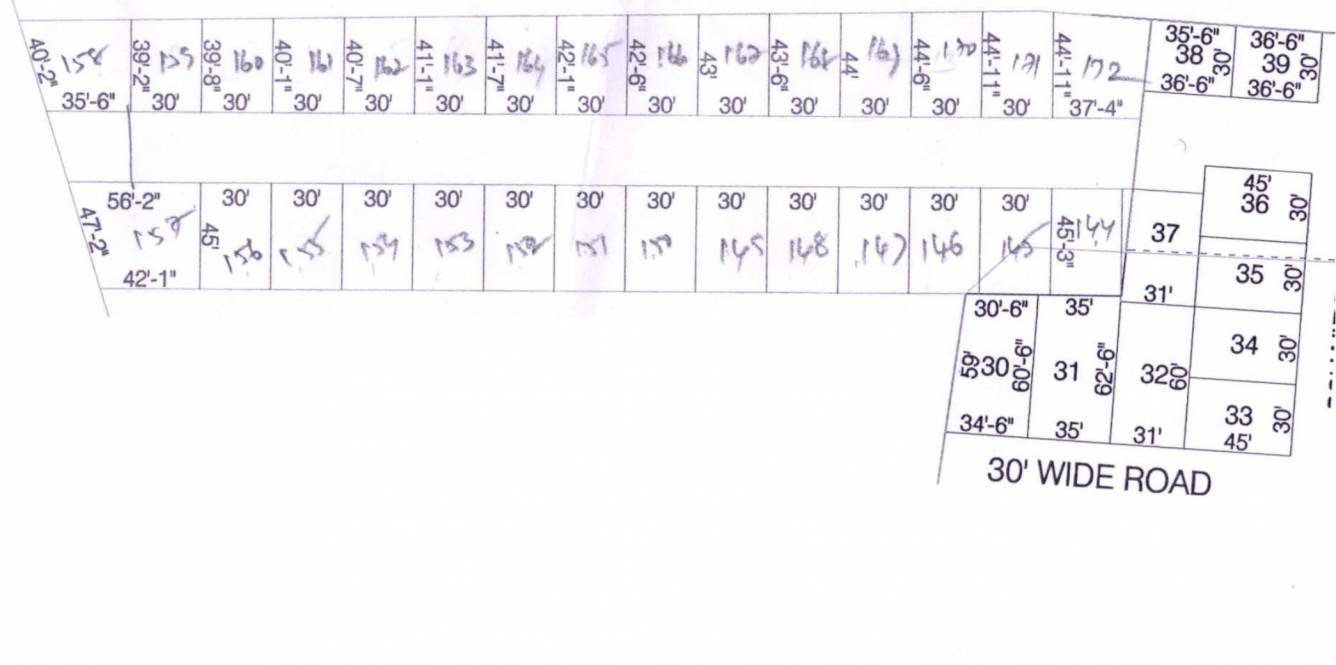 40'-2" 158 39'-2" 159 39'-8" 160 40'-1" 161 40'-7" 162 41'-1" 163 41'-7" 164 42'-1" 165 42'-6" 166 43' 167 43'-6" 168 44' 169 44'-6" 170 44'-11" 171 44'-11" 172
35'-6" 30' 30' 30' 30' 30' 30' 30' 30' 30' 30' 30' 30' 30' 37'-4"
35'-6" 36'-6"
38 30' 39 30'
36'-6" 36'-6"
56'-2" 30' 30' 30' 30' 30' 30' 30' 30' 30' 30' 30' 30'
47'-2" 157 45' 156 155 154 153 152 151 150 149 148 147 146 145 45'-3" 144
42'-1"
37
31'
45'
36 30'
35 30'
34 30'
33 30'
45'
30'-6" 35'
59' 30 60'-6" 31 62'-6" 32 60'
34'-6" 35' 31'
30' WIDE ROAD